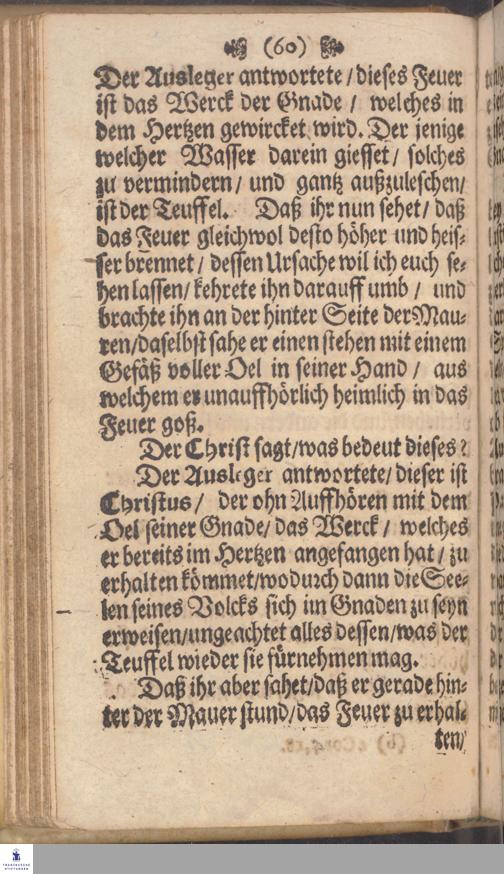 (60)
Der Ausleger antwortete / dieses Feuer
ist das Werck der Gnade / welches in
dem Hertzen gewircket wird. Der jenige
welcher Wasser darein giesset / solches
zu vermindern / und gantz außzuleschen /
ist der Teuffel. Daß ihr nun sehet / daß
das Feuer gleichwol desto höher und heis-
ser brennet / dessen Ursache wil ich euch se-
hen lassen / kehrete ihn darauff umb / und
brachte ihn an der hinter Seite der Mau-
ren / daselbst sahe er einen stehen mit einem
Gefäß voller Oel in seiner Hand / aus
welchem er unauffhörlich heimlich in das
Feuer goß.
Der Christ sagt / was bedeut dieses?
Der Ausleger antwortete / dieser ist
Christus / der ohn Auffhören mit dem
Oel seiner Gnade / das Werck / welches
er bereits im Hertzen angefangen hat / zu
erhalten kömmet / wodurch dann die See-
len seines Volcks sich im Gnaden zu seyn
erweisen / ungeachtet alles dessen / was der
Teuffel wieder sie fürnehmen mag.
Daß ihr aber sahet / daß er gerade hin-
ter der Mauer stund / das Feuer zu erhal-
ten /